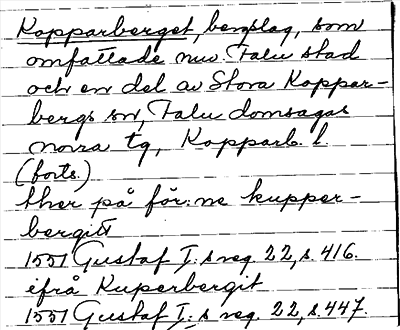 Kopparberget, bergslag, som
omfattade nuv. Falu stad
och en del av Stora Koppar-
bergs sn, Falu domsagas
norra tg, Kopparb. l.
(forts.)
ther på för:ne kupper-
bergit
1551 Gustaf I:s reg. 22, s. 416.
ifrå Kuperbergit
1551 Gustaf I:s reg. 22, s. 447.